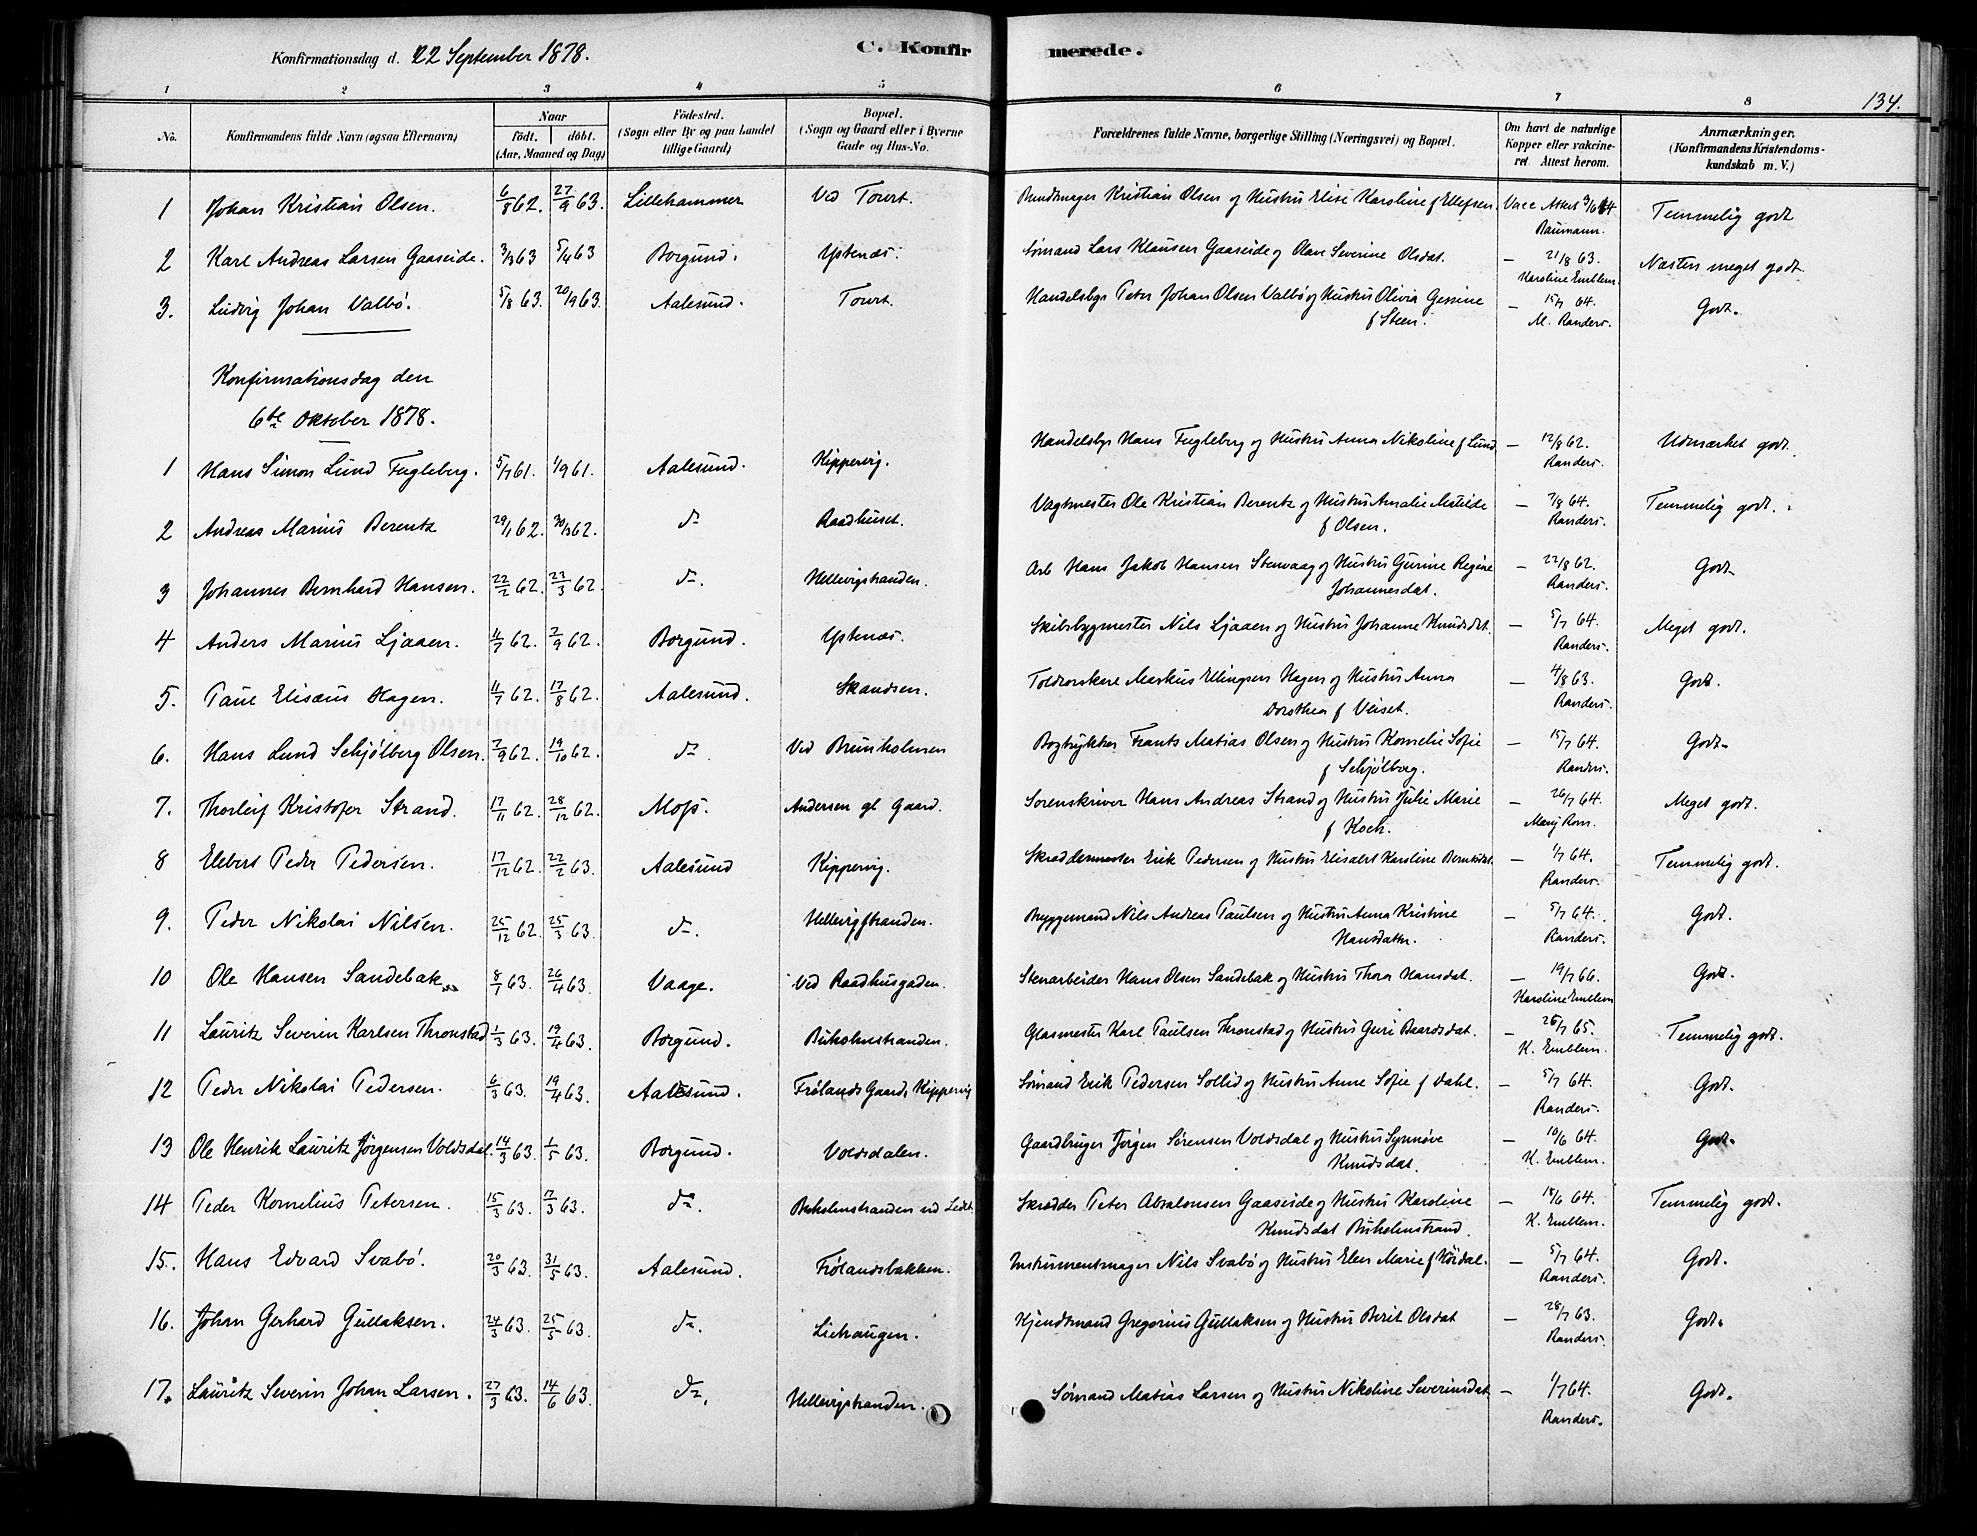 Konfirmationsdag d. 22 September 1878.
C. Konfirmerede.
134.
1 2 3 4 5 6 7 8
No.
Konfirmandens fulde Navn (ogsaa Efternavn)
Naar
født. døbt.
(Aar, Maaned og Dag)
Fødested.
(Sogn eller By og paa Landet
tillige Gaard)
Bopæl.
(Sogn og Gaard eller i Byerne
Gade og Hus-No.
Forældrenes fulde Navne, borgerlige Stilling (Næringsvei) og Bopæl.
Om havt de naturlige
Kopper eller vakcine-
ret Attest herom.
Anmærkninger.
(Konfirmandens Kristendoms-
kundskab m. V.)
1 Johan Kristian Olsen. 6/8 62. 27/9 63. Lillehammer Ved Tourt. Bundtmager Kristian Olsen og Hustru Elise Karoline f Ellefsen. Vacc Attest 3/6 64 Temmelig godt
Baumann.
2 Karl Andreas Larsen Gaaseide. 3/3 63 5/4 63 Borgund. Ystenæs. Sømand Lars Klausen Gaaseide og Olave Severine Olsdat. — 21/8 63. Næsten meget godt.
Karoline Emblem.
3. Ludvig Johan Valbö. 5/8 63. 20/9 63. Aalesund. Tourt. Handelsbgr Peter Johan Olsen Valbö og Hustru Olivia Gessine — 15/7 64. Godt.
f Steen. M. Randers.
Konfirmationsdag den
6te Oktober 1878.
1 Hans Simon Lund Fugleberg. 5/7 61. 1/9 61. Aalesund. Kippervig. Handelsbgr Hans Fugleberg og Hustru Anna Nikoline f Lund — 12/8 62. Udmærket godt.
Randers.
2 Andreas Marius Berentz 29/1 62. 30/3 62. do Raadhuset. Vagtmester Ole Kristian Berentz og Hustru Amalie Matilde — 7/8 64. Temmelig godt.
f Olsen. Randers.
3 Johannes Bernhard Hansen. 22/2 62. 23/3 62. do. Hellevigstranden. Arb Hans Jakob Hansen Stenvaag og Hustru Gurine Regine — 22/8 62. Godt
Johannesdat. Randers.
4 Anders Marius Ljaaen. 11/7 62. 7/9 62. Borgund. Ystenæs. Skibsbygmester Nils Ljaaen og Hustru Johanne Knudsdat. — 5/7 64. Meget godt.
Randers.
5. Paul Elisæus Hagen. 11/7 62. 17/8 62. Aalesund. Skandsen. Toldrorskarl Markus Ellingsen Hagen og Hustru Anna — 4/8 63. Godt.
Dorothea f Veiset. Randers.
6. Hans Lund Schjølberg Olsen. 7/9 62. 19/10 62. do Ved Brunholmen Bogtrykker Frants Matias Olsen og Hustru Kornelie Sofie — 15/7 64. Godt.
f Schjølberg. Randers.
7. Thorleif Kristofer Strand. 17/11 62. 28/12 62. Moss. Andersen gl Gaard. Sorenskriver Hans Andreas Strand og Hustru Julie Marie — 26/7 64. Meget godt.
f Koch.
8 Elebert Peder Pedersen. 17/12 62. 22/2 63. Aalesund Kippervig. Skræddermester Erik Pedersen og Hustru Elisabet Karoline Berntsdat. — 1/7 64. Temmelig godt.
Randers.
9. Peder Nikolai Nilsen. 25/12 62. 25/3 63. do. Hellevigstranden. Bryggemand Nils Andreas Paulsen og Hustru Anna Kristine — 5/7 64. Godt.
Hansdatter. Randers.
10 Ole Hansen Sandebak 8/1 63. 26/4 63. Vaage. Ved Raadhusgaden. Stenarbeider Hans Olsen Sandebak og Hustru Thora Hansdat. — 19/7 66. Godt.
Karoline Emblem
11 Lauritz Severin Karlsen Thronstad 1/3 63. 19/4 63. Borgund. Buholmstranden. Glasmester Karl Paulsen Thronstad og Hustru Guri Baardsdat. — 26/7 65. Temmelig godt.
K. Emblem.
12 Peder Nikolai Pedersen. 6/3 63. 19/4 63. Aalesund. Frølands Gaard, Kippervig Sømand Erik Pedersen Sollid og Hustru Anne Sofie f Dahl. — 5/7 64. Godt.
Randers.
13 Ole Henrik Lauritz Jørgensen Voldsdal. 14/3 63. 1/5 63. Borgund. Voldsdalen. Gaardbruger Jørgen Sørensen Voldsdal og Hustru Synnøve — 10/6 64. Godt.
Knudsdat. K. Emblem.
14 Peder Kornelius Petersen. 15/3 63. 17/3 63. do. Buholmstranden ved Ledet Skrædder Peter Absalonsen Gaaseide og Hustru Karoline — 18/6 64. Temmelig godt.
Knudsdat Buholmstrand. K. Emblem.
15. Hans Edvard Svabö. 20/3 63. 31/5 63. Aalesund. Frølandsbakken. Instrumentmager Nils Svabö og Hustru Elen Marie f Hördal. — 5/7 64. Godt.
Randers.
16. Johan Gerhard Gullaksen. 24/3 63. 25/5 63. do. Liehaugen. Kjendtmand Gregorius Gullaksen og Hustru Berit Olsdat — 28/7 63. Godt.
Randers.
17. Lauritz Severin Johan Larsen. 27/3 63. 14/6 63. do. Hellevigstranden. Sømand Matias Larsen og Hustru Nikoline Severinsdat — 1/7 64. Godt.
Randers.